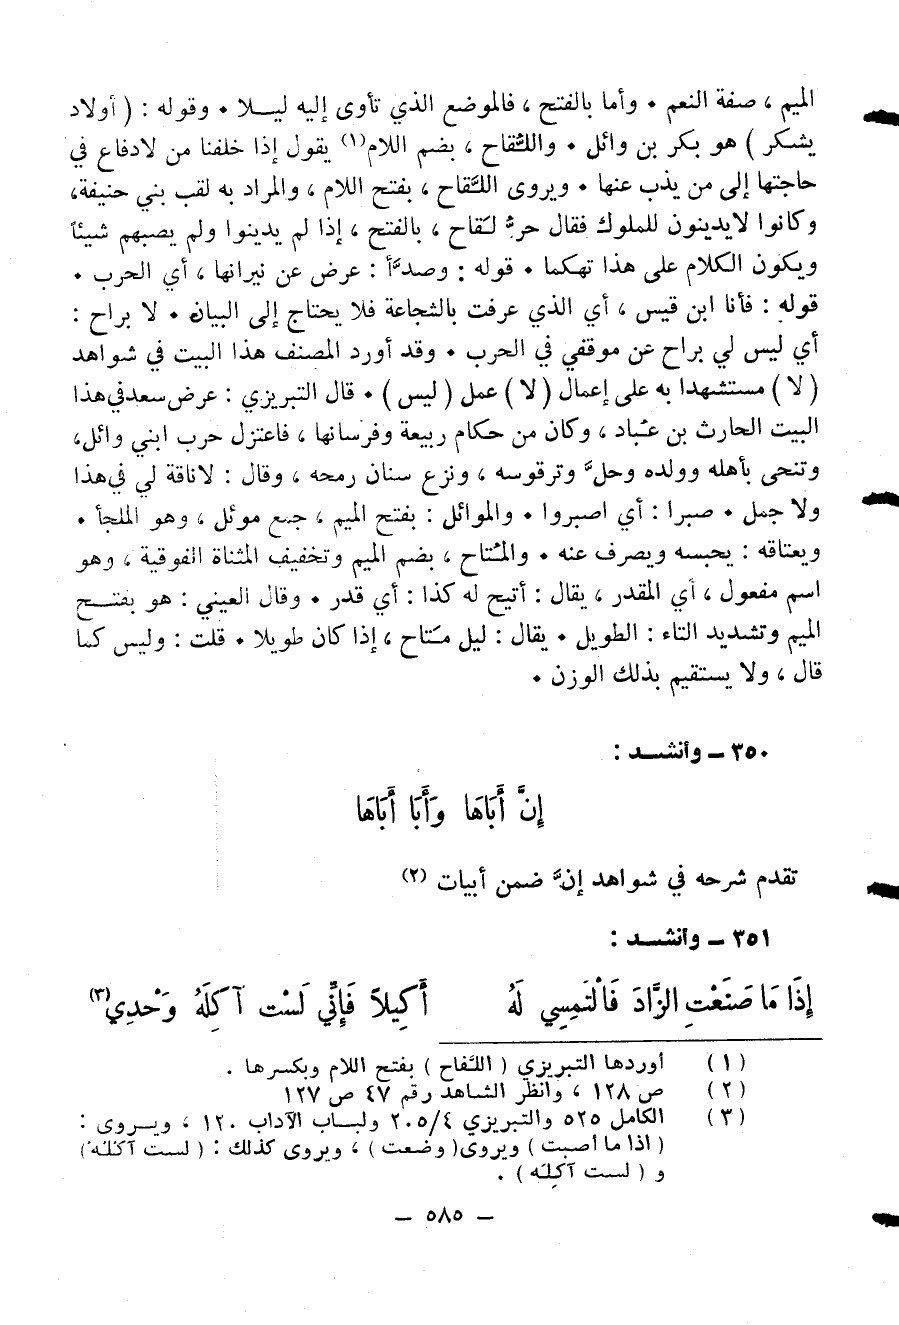 الميم ، صفة النعم • وأما بالفتح ، فالموضع الذي تأوى إليه ليلا • وقوله : ( أولاد
يشكر ) هو بكر بن وائل • واللقاح ، بضم اللام(١) يقول إذا خلفنا من لادفاع في
حاجتها إلى من يذب عنها • ويروى اللَّقاح ، بفتح اللام ، والمراد به لقب بني حنيفة،
وكانوا لايدينون للملوك فقال حيّ لقاح ، بالفتح ، إذا لم يدينوا ولم يصبهم شيئاً
ويكون الكلام على هذا تهكما • قوله : وصدَّأ : عرض عن نيرانها ، أي الحرب •
قوله : فأنا ابن قيس ، أي الذي عرفت بالشجاعة فلا يحتاج إلى البيان • لا براح :
أي ليس لي براح عن موقفي في الحرب • وقد أورد المصنف هذا البيت في شواهد
(لا) مستشهدا به على إعمال (لا) عمل (ليس) • قال التبريزي : عرض سعد في هذا
البيت الحارث بن عباد ، وكان من حكام ربيعة وفرسانها ، فاعتزل حرب ابني وائل،
وتنحى بأهله وولده وحلَّ وترقوسه ، ونزع سنان رمحه ، وقال : لاناقة لي في هذا
ولا جمل • صبرا : أي اصبروا • والموائل : بفتح الميم ، جمع موئل ، وهو الملجأ •
ويعتاقه : يحبسه ويصرف عنه • والمُتاح ، بضم الميم وتخفيف المثناة الفوقية ، وهو
اسم مفعول ، أي المقدر ، يقال : أتيح له كذا : أي قدر • وقال العيني : هو بفتح
الميم وتشديد التاء : الطويل • يقال : ليل متاح ، إذا كان طويلا • قلت : وليس كما
قال ، ولا يستقيم بذلك الوزن •
٣٥٠ – وأنشد :
إِنَّ أَبَاهَا وَأَبَا أَبَاهَا
تقدم شرحه في شواهد إنَّ ضمن أبيات (٢)
٣٥١ – وأنشد :
إِذَا مَا صَنَعْتِ الزَّادَ فَالْتَمِسِي لَهُ أَكِيلاً فَإِنِّي لَسْت آكِلَهُ وَحْدِي(٣)
(١) أوردها التبريزي ( اللقاح ) بفتح اللام وبكسرها .
(٢) ص ١٢٨ ، وانظر الشاهد رقم ٤٧ ص ١٢٧
(٣) الكامل ٥٢٥ والتبريزي ٢٠٥/٤ ولباب الآداب ١٢٠ ، ويروى :
( اذا ما أصبت ) ويروى( وضعت ) ، ويروى كذلك : ( لست آكله )
و ( لست آكِلَه ) .
– ٥٨٥ –